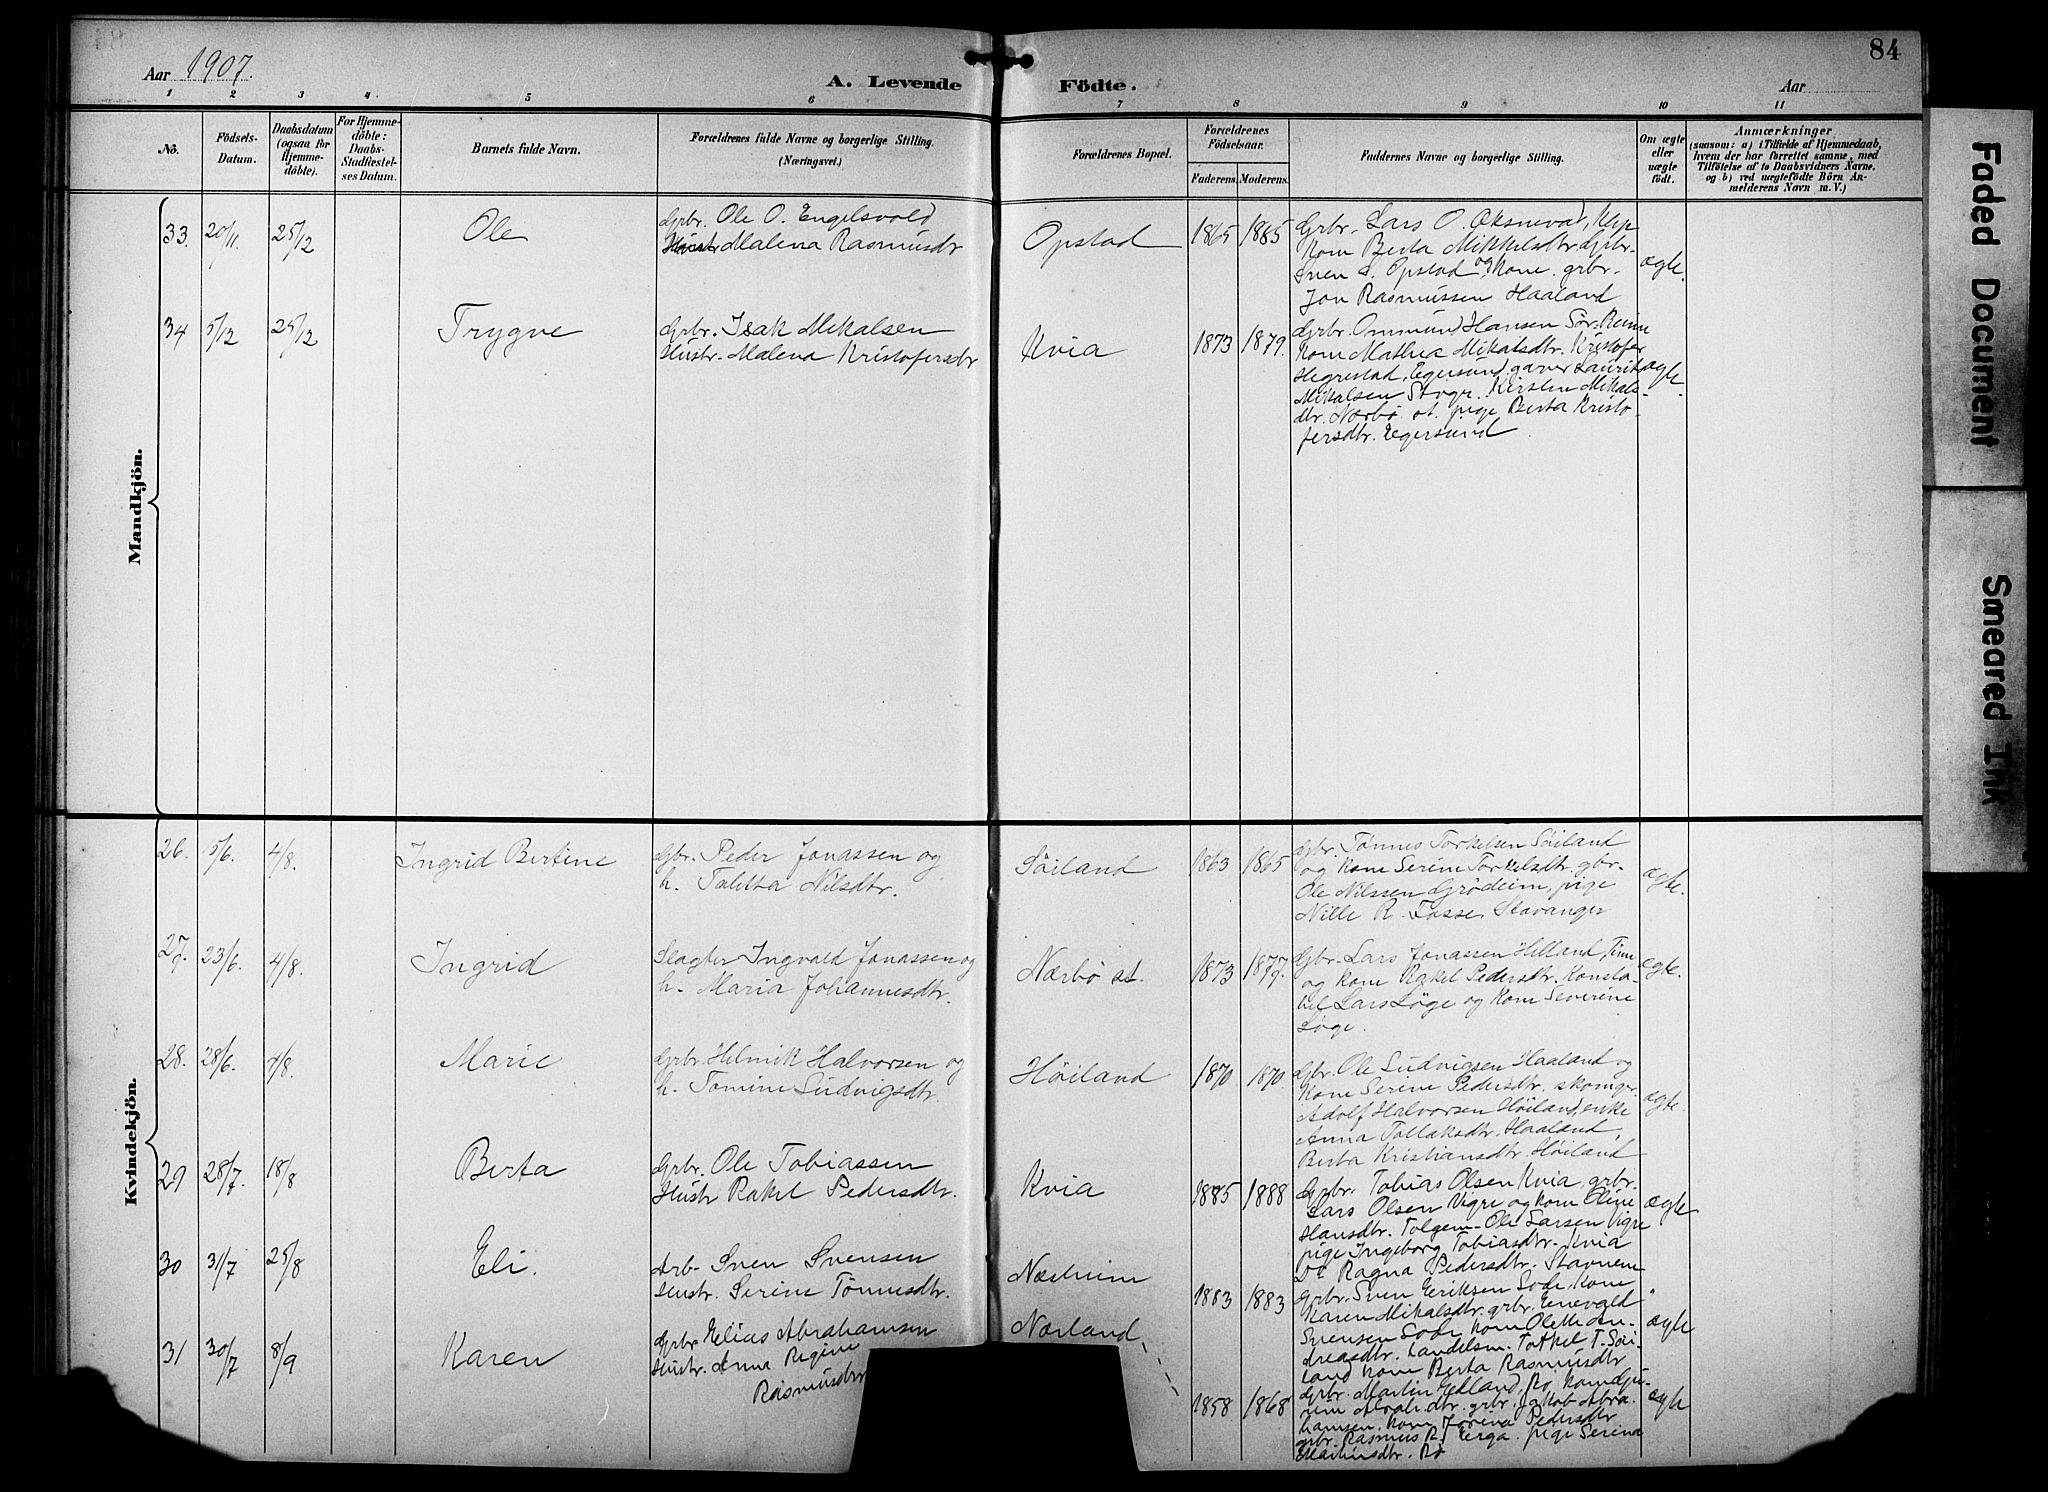 Aar 1907.
A. Levende Födte.
Aar
84
1 2 3 4 5 6 7 8 9 10 11
No.
Födsels-
Datum.
Daabsdatum
(ogsaa for
Hjemme-
döbte).
For Hjemme-
döbte:
Daabs-
Stadfæstel-
ses Datum.
Barnets fulde Navn.
Forældrenes fulde Navne og borgerlige Stilling.
(Næringsvei.)
Forældrenes Bopæl.
Forældrenes
Födselsaar.
Faderens. Moderens.
Faddernes Navne og borgerlige Stilling.
Om ægte
eller
uægte
födt.
Anmærkninger
(saasom: a) i Tilfælde af Hjemmedaab,
hvem der har forrettet samme, med
Tilföielse af to Daabsvidners Navne.
og b) ved uægtefödte Börn An-
melderens Navn m. V.)
Mandkjön.
33. 20/11. 25/12 Ole
Grbr. Ole O. Engelsvold
Hustr Malena Rasmusdtr
Opstad 1865 1885
Grbr. Lars O. Oksnevad, Klep
Kone Berta Mikkelsdtr. Grbr.
Sven S. Opstad og Kone. grbr.
Jon Rasmussen Haaland
ægte.
34 5/12 25/12 Trygve
Grbr. Isak Mikalsen
Hustr. Malena Kristofersdtr
Kvia 1873 1879.
Grbr. Ommund Hansen Sör-Reime
Kone Mathea Mikalsdtr. Kristofer
Hegrestad, Egersund. garver Laurits
Mikalsen Stvgr. Kirsten Mikals-
dtr. Nærbö st. pige Berta Kristo-
fersdtr. Egersund
ægte.
Kvindekjön.
26. 5/6. 4/8. Ingrid Bertine
Gbr. Peder Jonassen og
h. Taletta Nilsdtr.
Söiland 1863 1865
Gbr. Tönnes Torkelsen Söiland
og kone Serine Torkelsdtr. gbr.
Ole Nilssen Grödeim, pige
Nille R. Fosse, Stavanger
ægte.
27. 23/6. 4/8. Ingrid
Slagter Ingvald Jonassen og
h. Maria Johannesdtr.
Nærbö st. 1873 1877
Gbr. Lars Jonassen Helland, Time
og kone Rakel Pedersdtr. Konsta-
bel Lars Löge og kone Severine
Löge.
ægte.
28. 28/6. 4/8. Marie
Grbr. Helmik Halvorsen og
h. Tomine Ludvigsdtr.
Höiland 1870 1870
Gbr. Ole Ludvigsen Haaland og
Kone Serine Pedersdtr. skomger
Adolf Halvorsen Höiland, enke
Anna Tollaksdtr. Haaland,
Berta Kristiansdtr. Höiland
ægte.
29 28/7. 18/8 Berta
Grbr. Ole Tobiassen
Hustr Rakel Pedersdtr.
Kvia 1885 1888
Grbr. Tobias Olsen Kvia, grbr.
Lars Olsen Vigre og kone Oline
Hansdtr. Tolgem- Ole Larsen Vigre
pige Ingeborg Tobiasdtr. Kvia
Do Ragna Pedersdtr. Stavnem
ægte
30 31/7 25/8 Eli.
Arb- Sven Svensen
Hustr. Serine Tönnesdtr.
Næsheim 1883 1883
Grbr. Sven Eriksen Lode, Kone
Karen Mikalsdtr. grbr. Enevald
Svensen Lode kone Olette An-
dreasdtr. Landelsm. Torkel T. Söi-
land kone Berta Rasmusdtr
ægte
31 30/7 8/9 Karen
Grbr Elias Abrahamsen
Hustr. Anna Regine
Rasmusdtr
Nærland 1858 1868
Grbr. Martin Edland, Bö,
grbr. Jakob Abra-
hamsen, kone Jorina Pedersdtr
grbr. Rasmus R. Erga. pige Serina
Martinsdtr. Bö
ægte
Faded Document
Smeared Ink